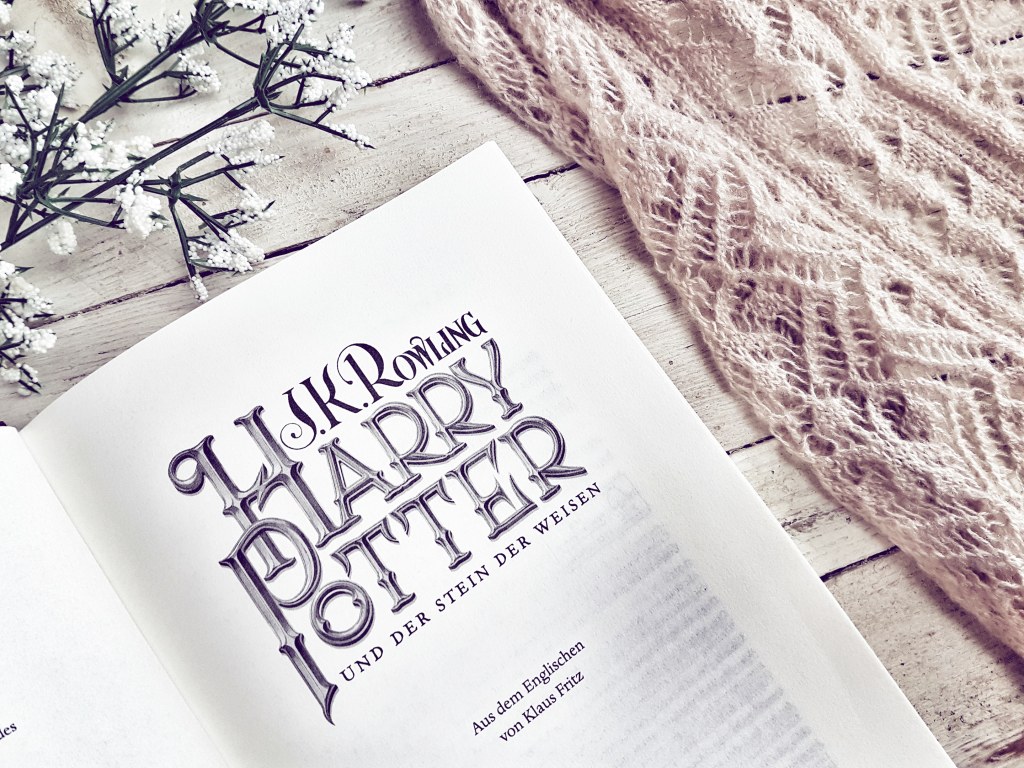 J.K. ROWLING
HARRY
POTTER
UND DER STEIN DER WEISEN
Aus dem Englischen
von Klaus Fritz